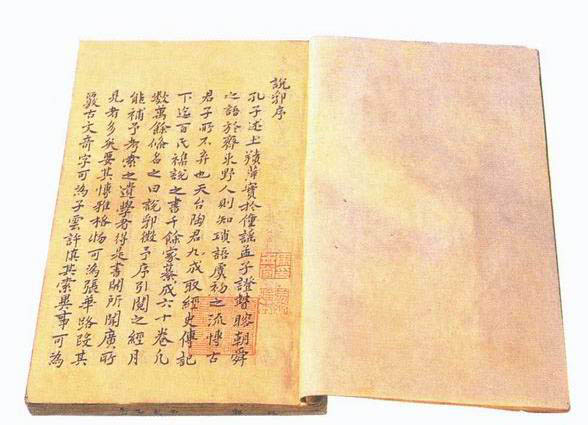 說郛序
孔子述土羵萍實於僮謠孟子證瞽瞍朝舜
之語於齊東野人則知瑣語虞初之流博古
君子所不弃也天台陶君九成取經史傳記
下迨百氏襍說之書千餘家纂成六十卷凡
數萬餘條名之曰說郛徵予序引閱之經月
能補予考索之遺學者得是書開所聞廣所
見者多矣要其博雅格物可為張華路段其
覈古文奇字可為子雲許慎其索異事可為